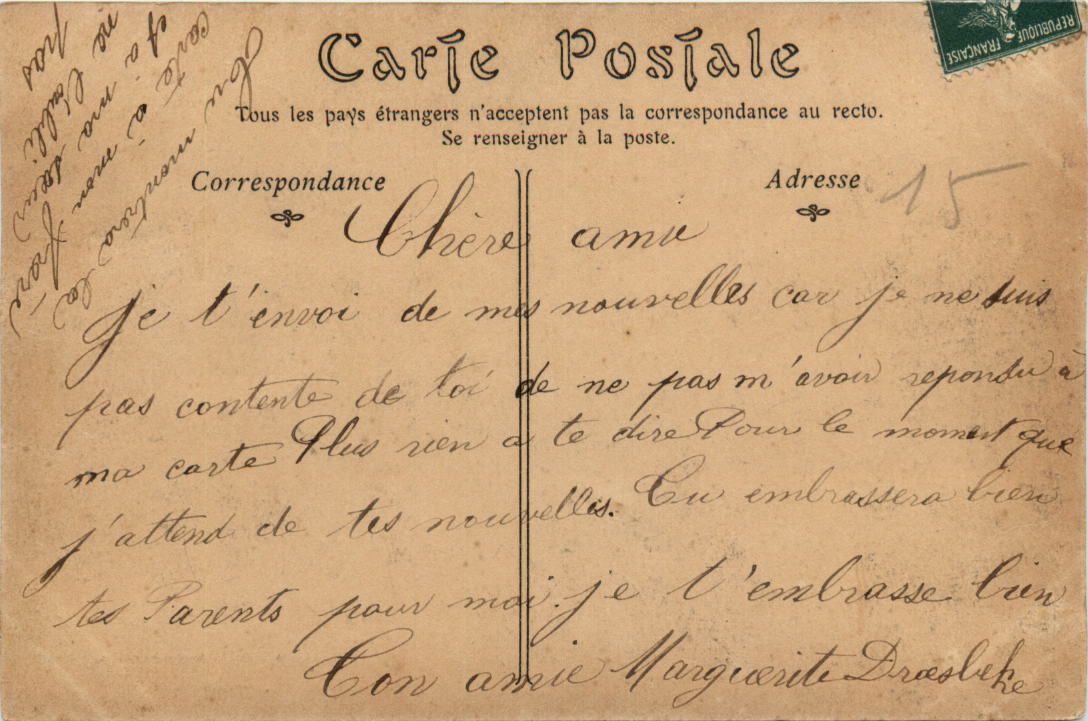 Carte Postale
Tous les pays étrangers n'acceptent pas la correspondance au recto.
Se renseigner à la poste.
Correspondance
Adresse
15
REPUBLIQUE FRANÇAISE
Chère amie
Je t'envoi de mes nouvelles car je ne suis
pas contente de toi de ne pas m'avoir repondu à
ma carte Plus rien a te dire Pour le moment que
j'attend de tes nouvelles. Tu embrassera bien
tes Parents pour moi. je t'embrasse bien
Ton amie Marguerite Dræsbeke
Tu montrera la
carte à mon frere
et à ma sœur
ne l'oubli
pas